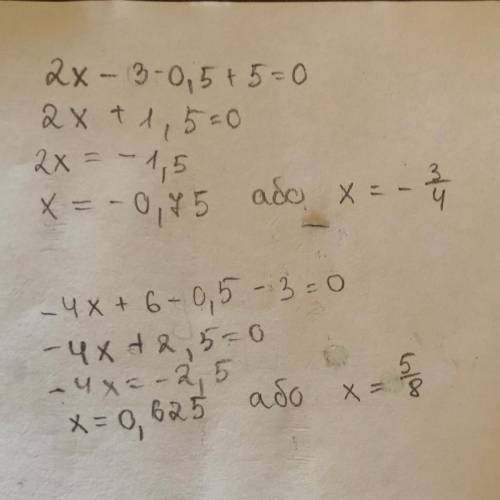 2x - 3 - 0,5 + 5 = 0
2x + 1,5 = 0
2x = -1,5
x = -0,75 або x = -3/4
-4x + 6 - 0,5 - 3 = 0
-4x + 2,5 = 0
-4x = -2,5
x = 0,625 або x = 5/8